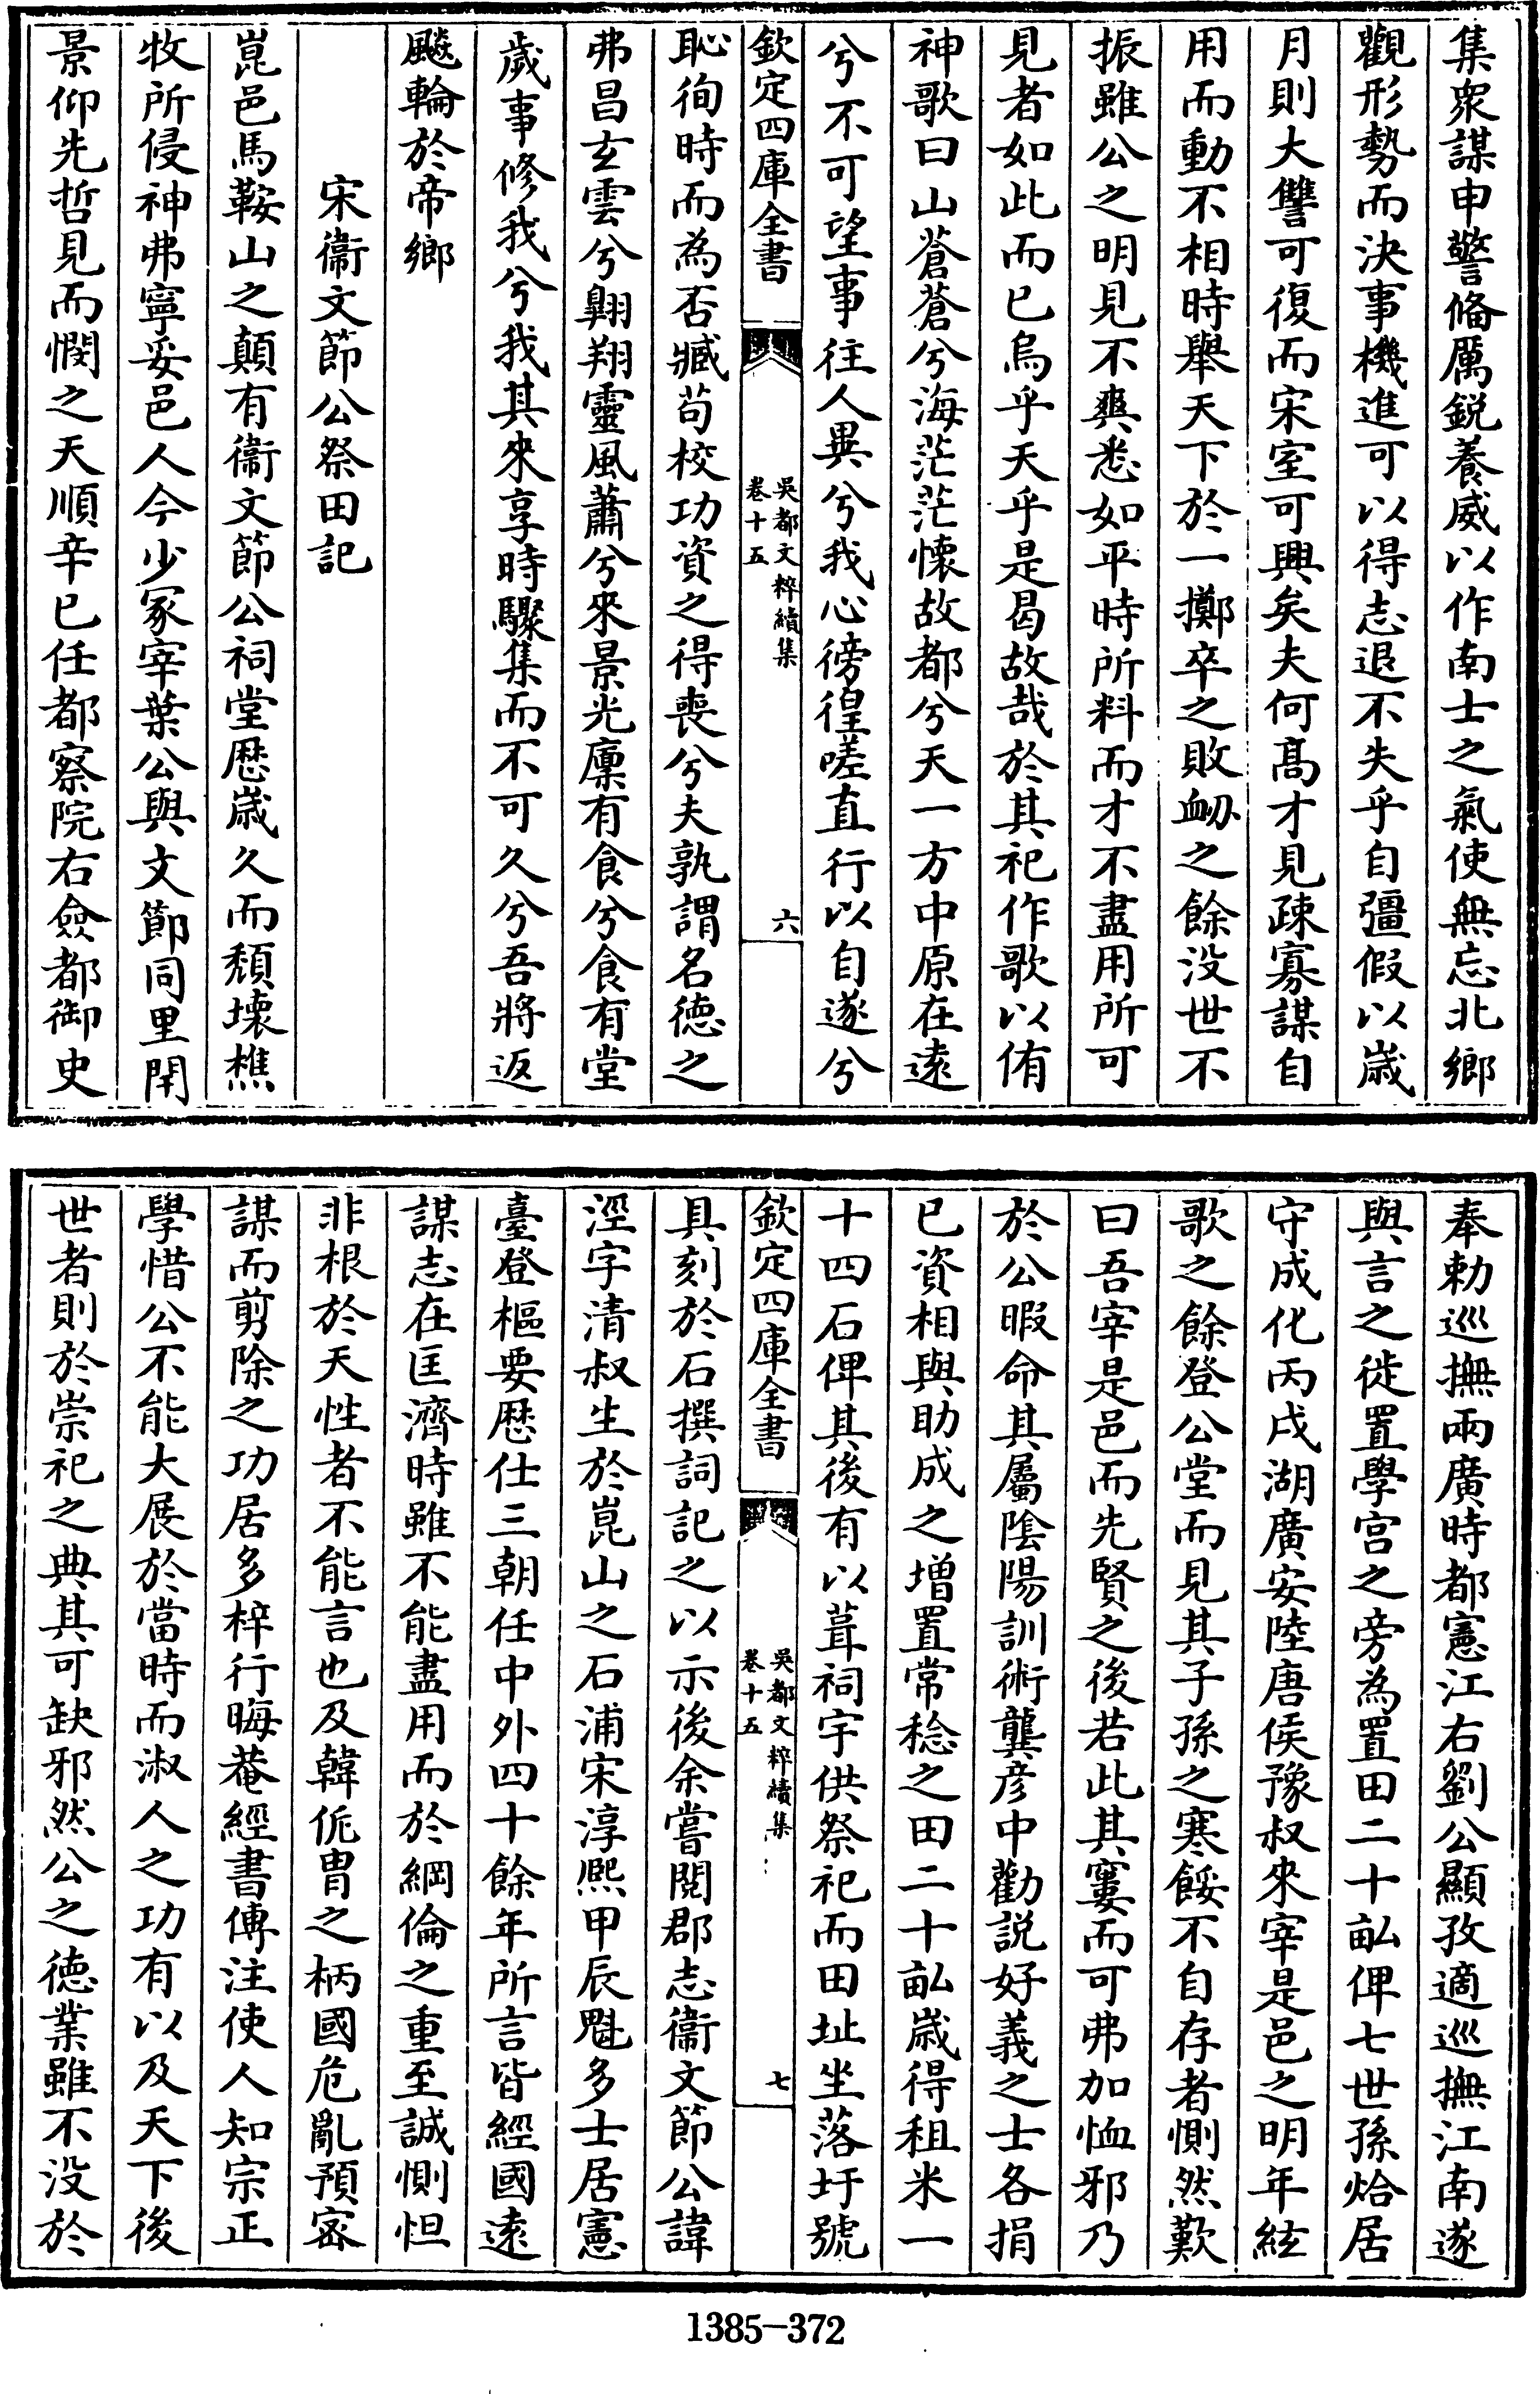 集衆謀申警偹厲鋭養威以作南士之氣使無忘北鄉
觀形勢而決事機進可以得志退不失乎自彊假以嵗
月則大讐可復而宋室可興矣夫何髙才見疎寡謀自
用而動不相時舉天下於一擲卒之敗衂之餘没世不
振雖公之明見不爽悉如平時所料而才不盡用所可
見者如此而已烏乎天乎是曷故哉於其祀作歌以侑
神歌曰山蒼蒼兮海茫茫懷故都兮天一方中原在逺
兮不可望事往人異兮我心徬徨嗟直行以自遂兮
欽定四庫全書 吳都文粹續集 卷十五 六
恥徇時而為否臧茍校功資之得喪兮夫孰謂名徳之
弗昌玄雲兮翺翔靈風蕭兮來景光廩有食兮食有堂
歲事修我兮我其來享時驟集而不可久兮吾將返
飈輪於帝鄉
宋衞文節公祭田記
崑邑馬鞍山之顛有衞文節公祠堂歴嵗久而頽壊樵
牧所侵神弗寧妥邑人今少冢宰葉公與文節同里閈
景仰先哲見而憫之天順辛巳任都察院右僉都御史
奉勅巡撫兩廣時都憲江右劉公顯孜適巡撫江南遂
與言之徙置學宫之旁為置田二十畝俾七世孫焓居
守成化丙戌湖廣安陸唐侯豫叔來宰是邑之明年絃
歌之餘登公堂而見其子孫之寒餒不自存者惻然歎
曰吾宰是邑而先賢之後若此其窶而可弗加恤邪乃
於公暇命其屬隂陽訓術龔彦中勸説好義之士各捐
已資相與助成之増置常稔之田二十畝嵗得租米一
十四石俾其後有以葺祠宇供祭祀而田址坐落圩號
欽定四庫全書 吳都文粹續集 卷十五 七
具刻於石撰詞記之以示後余嘗閲郡志衞文節公諱
涇字清叔生於崑山之石浦宋淳熙甲辰魁多士居憲
臺登樞要歴仕三朝任中外四十餘年所言皆經國逺
謀志在匡濟時雖不能盡用而於綱倫之重至誠惻怛
非根於天性者不能言也及韓侂胄之柄國危亂預宻
謀而剪除之功居多梓行晦菴經書傳注使人知宗正
學惜公不能大展於當時而淑人之功有以及天下後
世者則於崇祀之典其可缺邪然公之徳業雖不没於
1385-372